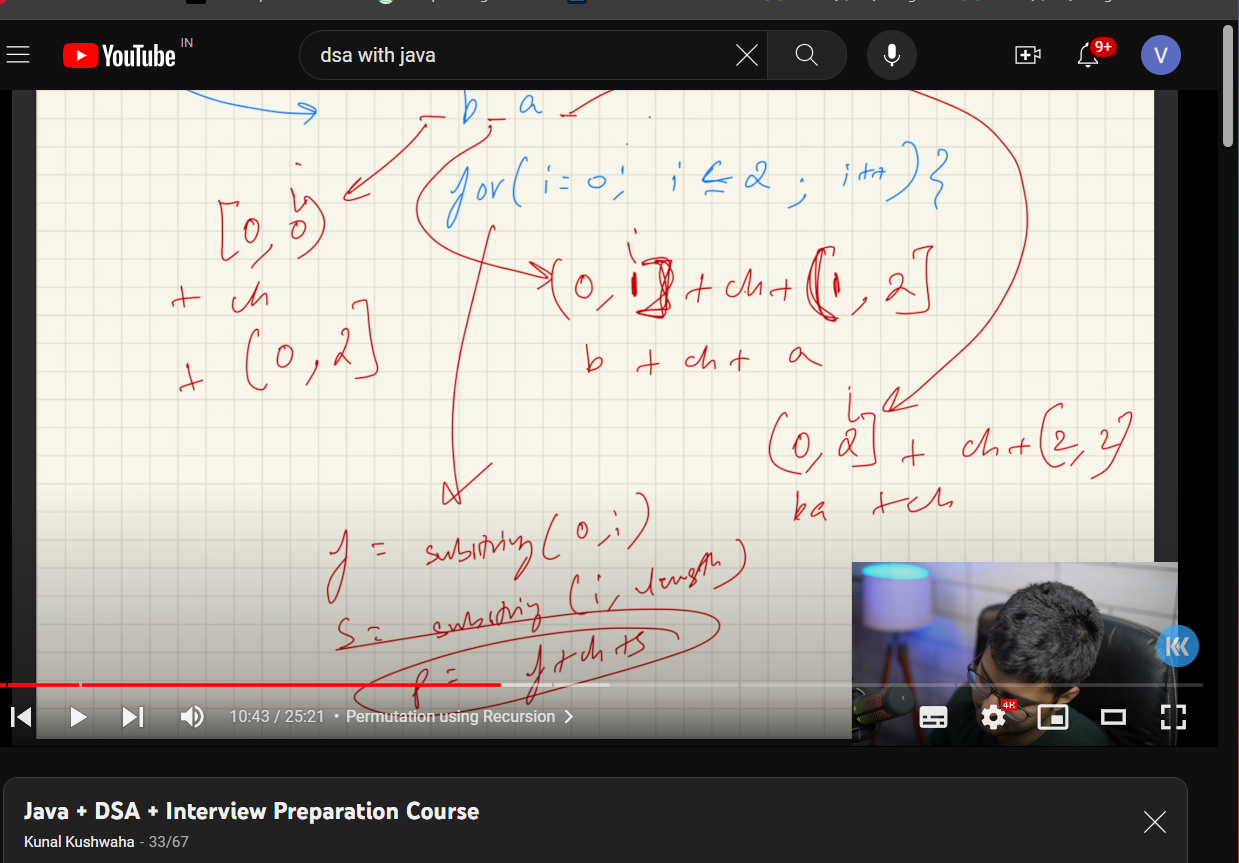 YouTube IN
dsa with java
9+
V
_ b _ a _
for(i=0; i<=2; i++){
i
[0, 0)
+ ch
+ (0, 2]
i
(0, 1] + ch + [1, 2]
b + ch + a
i
(0, 2] + ch + (2, 2]
ba + ch
f = substring(0, i)
s = substring(i, length)
p = f + ch + s
10:43 / 25:21 • Permutation using Recursion >
4K
Java + DSA + Interview Preparation Course
Kunal Kushwaha - 33/67